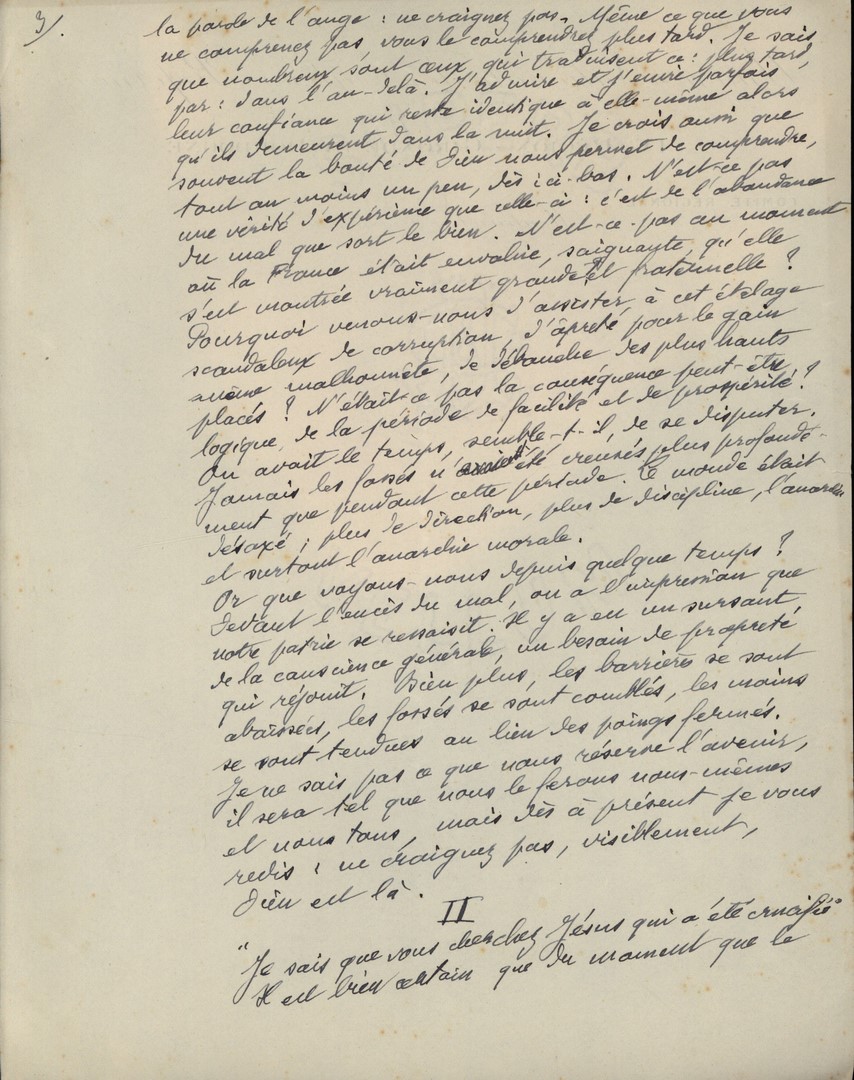 3/.
la parole de l'ange : ne craignez pas. Même ce que vous
ne comprenez pas, vous le comprendrez plus tard. Je sais
que nombreux sont ceux qui traduisent ce : plus tard,
par : dans l'au-delà. J'admire et j'envie parfois
leur confiance qui reste identique à elle-même alors
qu'ils demeurent dans la nuit. Je crois aussi que
souvent la bonté de Dieu nous permet de comprendre,
tout au moins un peu, dès ici-bas. N'est-ce pas
une vérité d'expérience que celle-ci : c'est de l'abondance
du mal que sort le bien. N'est-ce-pas au moment
où la France était envahie, saignante, qu'elle
s'est montrée vraiment grande et fraternelle ?
Pourquoi venons-nous d'assister à cet étalage
scandaleux de corruption, d'âpreté pour le gain
même malhonnête, de débauche des plus hauts
placés ? N'était-ce pas la conséquence peut-être
logique, de la période de facilité et de prospérité ?
On avait le temps, semble-t-il, de se disputer.
Jamais les fossés n'avaient été creusés plus profondé-
ment que pendant cette période. Le monde était
désaxé ; plus de direction, plus de discipline, l'anarchie
et surtout l'anarchie morale.
Or que voyons-nous depuis quelque temps ?
Devant l'excès du mal, on a l'impression que
notre patrie se ressaisit. Il y a eu un sursaut
de la conscience générale, un besoin de propreté
qui réjouit. Bien plus, les barrières se sont
abaissées, les fossés se sont comblés, les mains
se sont tendues au lieu des poings fermés.
Je ne sais pas ce que nous réserve l'avenir,
il sera tel que nous le ferons nous-mêmes
et nous tous, mais dès à présent je vous
redis : ne craignez pas, visiblement,
Dieu est là.
II
"Je sais que vous cherchez Jésus qui a été crucifié"
Il est bien certain que du moment que le